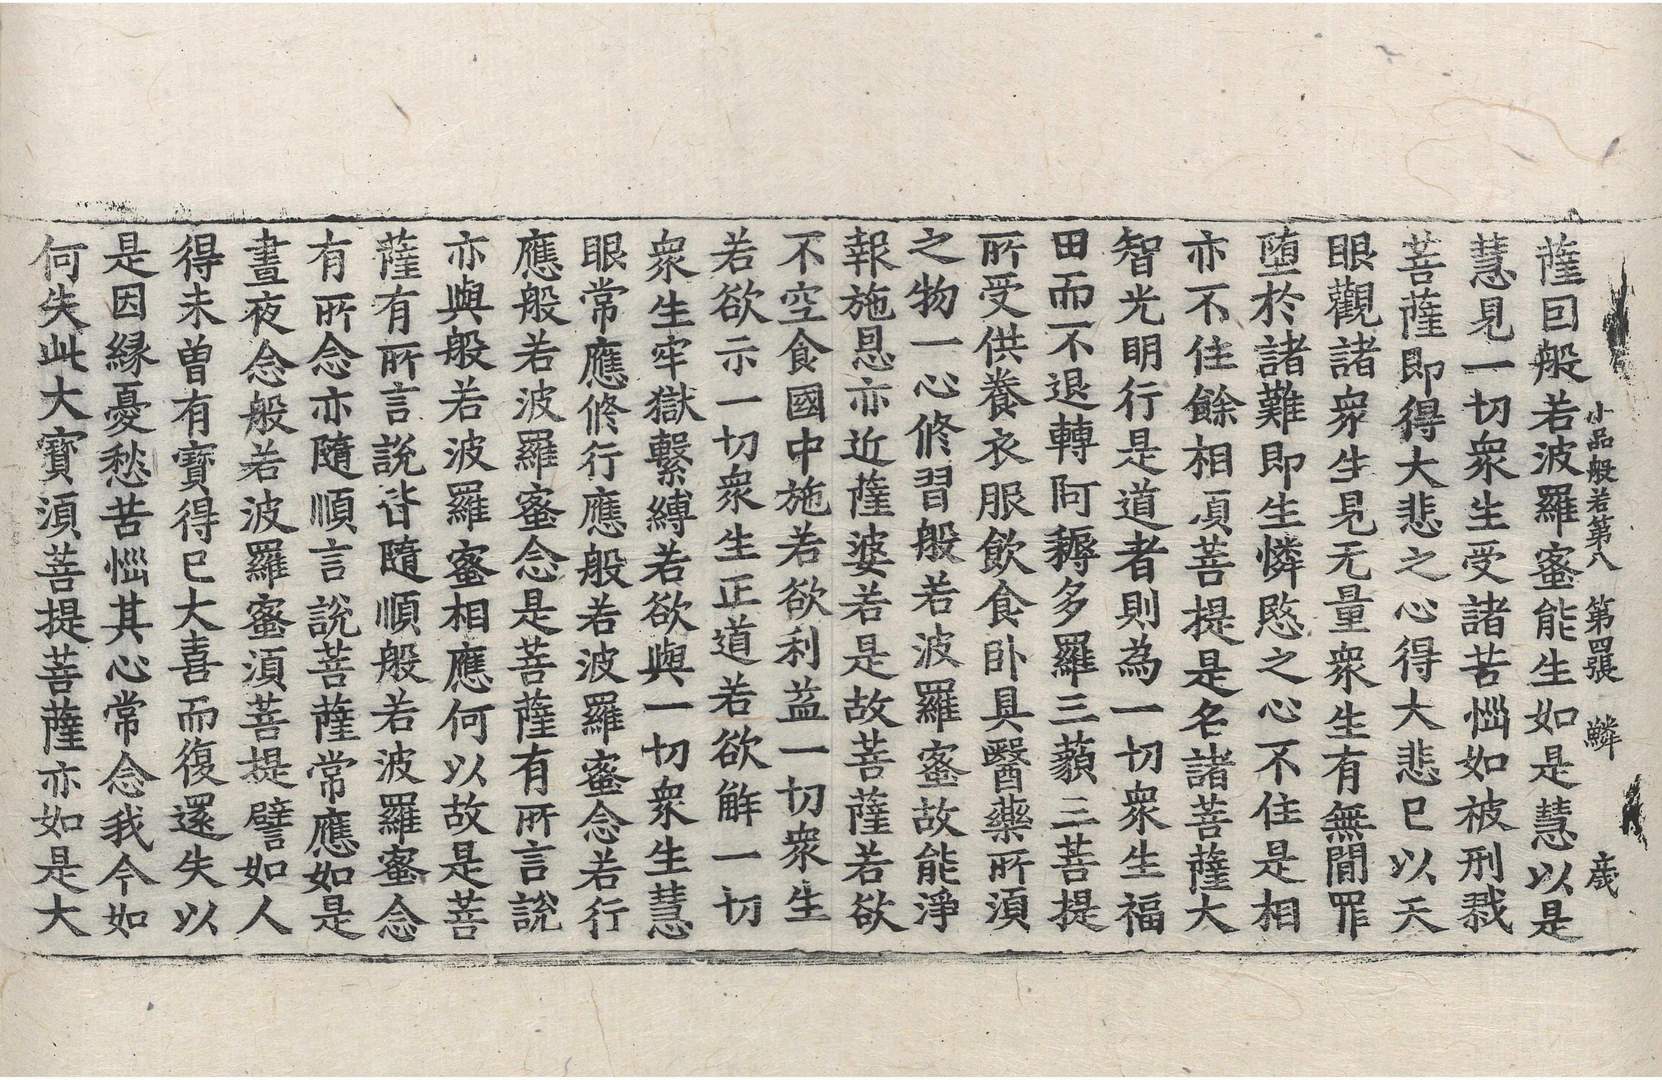 小品般若第八 第四張 鱗 歲
薩因般若波羅蜜能生如是慧以是
慧見一切衆生受諸苦惱如被刑戮
菩薩即得大悲之心得大悲已以天
眼觀諸衆生見无量衆生有無閒罪
墮於諸難即生憐愍之心不住是相
亦不住餘相須菩提是名諸菩薩大
智光明行是道者則為一切衆生福
田而不退轉阿耨多羅三藐三菩提
所受供養衣服飮食卧具醫藥所須
之物一心修習般若波羅蜜故能淨
報施恩亦近薩婆若是故菩薩若欲
不空食國中施若欲利益一切衆生
若欲示一切衆生正道若欲解一切
衆生牢獄繫縛若欲與一切衆生慧
眼常應修行應般若波羅蜜念若行
應般若波羅蜜念是菩薩有所言說
亦與般若波羅蜜相應何以故是菩
薩有所言說皆隨順般若波羅蜜念
有所念亦隨順言說菩薩常應如是
晝夜念般若波羅蜜須菩提譬如人
得未曾有寶得已大喜而復還失以
是因縁憂愁苦惱其心常念我今如
何失此大寶須菩提菩薩亦如是大